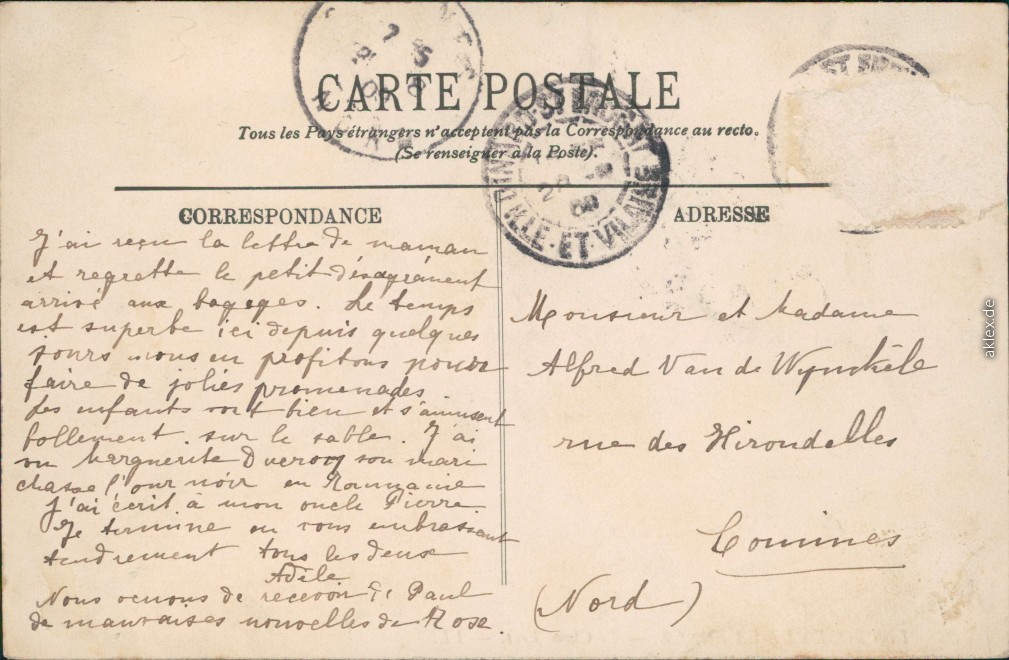 CARTE POSTALE
Tous les Pays étrangers n'acceptent pas la Correspondance au recto.
(Se renseigner à la Poste).
CORRESPONDANCE
J'ai reçu la lettre de maman
et regrette le petit désagrément
arrivé aux bagages. Le temps
est superbe ici depuis quelques
jours nous en profitons pour
faire de jolies promenades
les enfants vont bien et s'amusent
follement sur le sable. J'ai
vu Marguerite son mari
chasse l'our noir en Roumanie
J'ai écrit à mon oncle Pierre
Je termine en vous embrassant
tendrement tous les deux
Adèle
Nous venons de recevoir de Paul
de mauvaises nouvelles de Rose.
ADRESSE
Monsieur et Madame
Alfred Van de Wynckèle
rue des Hirondelles
Comines
(Nord)
ILLE-ET-VILAINE
aklex.de